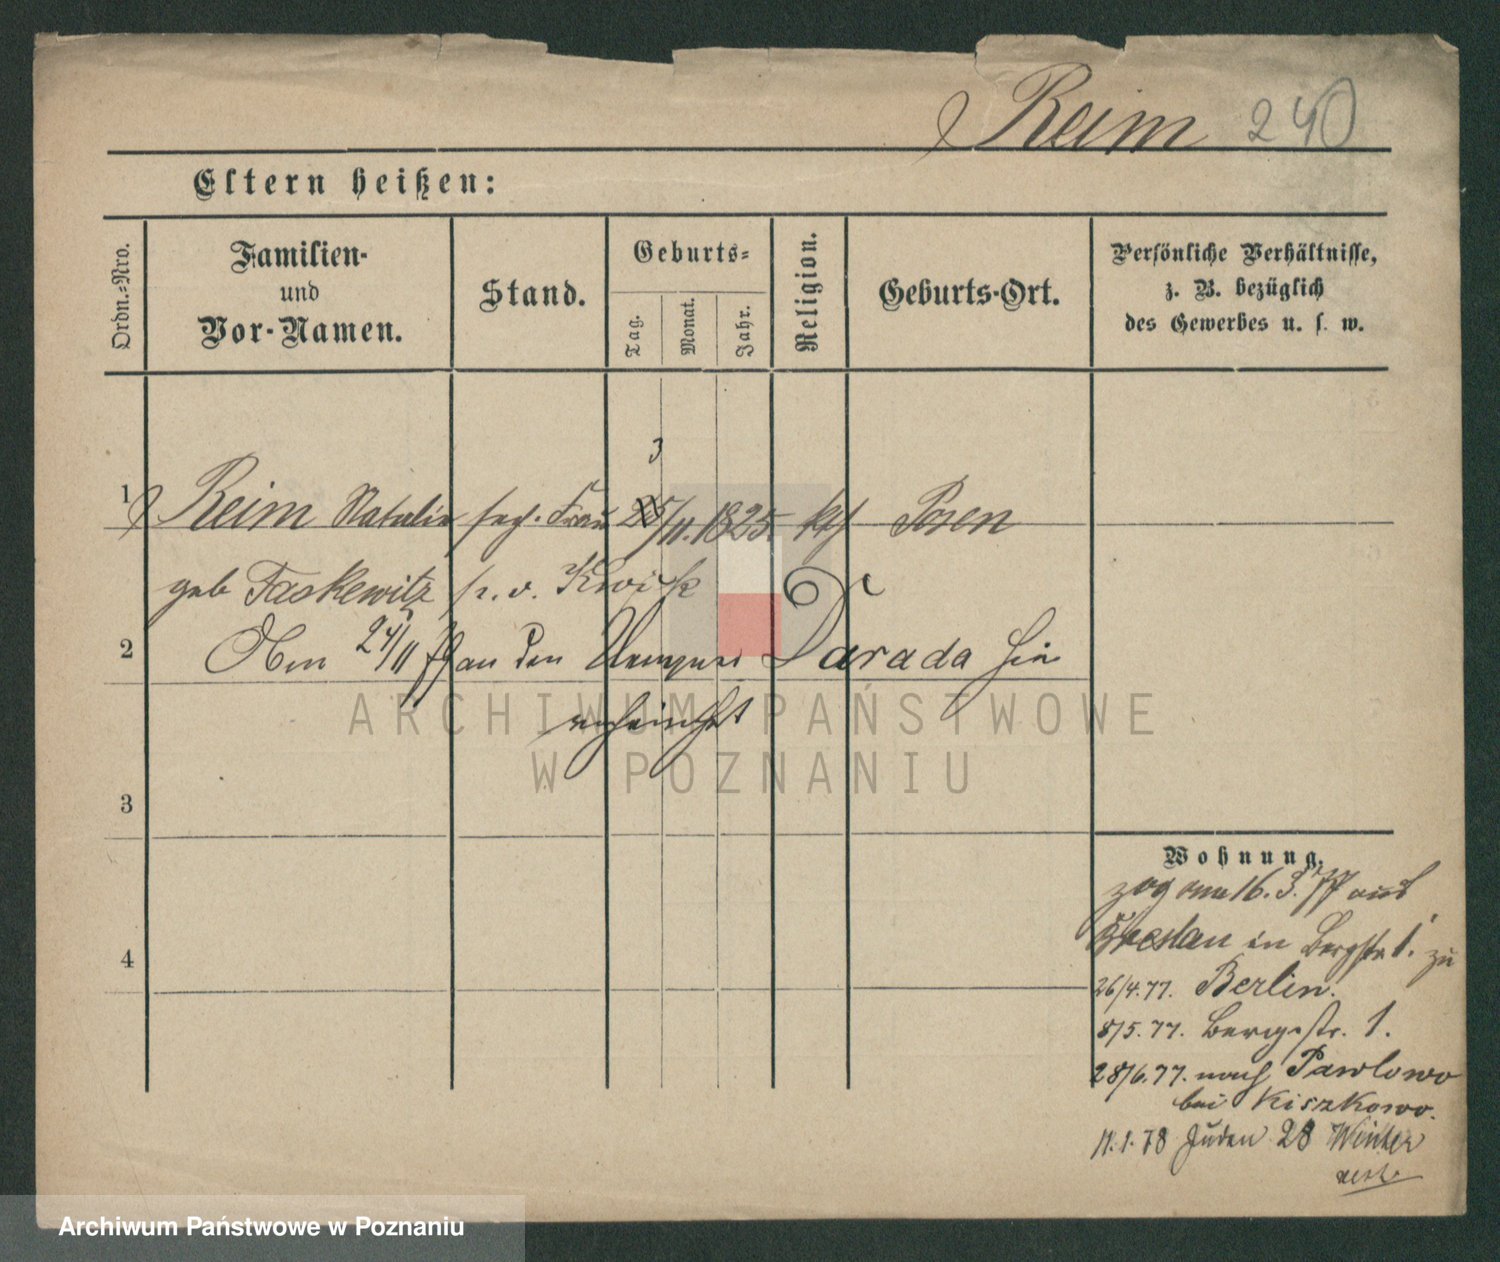 Reim 240
Eltern heißen:
Ordn.-Nro.
Familien-
und
Vor-Namen.
Stand.
Geburts-
Tag.
Monat.
Jahr.
Religion.
Geburts-Ort.
Persönliche Verhältnisse,
z. B. bezüglich
des Gewerbes u. s. w.
3
1 Reim Natalie sep. Frau 25/11. 1825. kth Posen
geb Taskewitz
2 24/11 77 an den Darada hier
verheirathet
3
4
Wohnung.
zog am 16.3.77 aus
Breslau in Bergstr 1. zu
26/4.77. Berlin.
8/5.77. Bergstr. 1.
28/6.77. nach Pawlowo
bei Kiszkowo.
11.1.78 Juden 28 Winter
ARCHIWUM PAŃSTWOWE
W POZNANIU
Archiwum Państwowe w Poznaniu